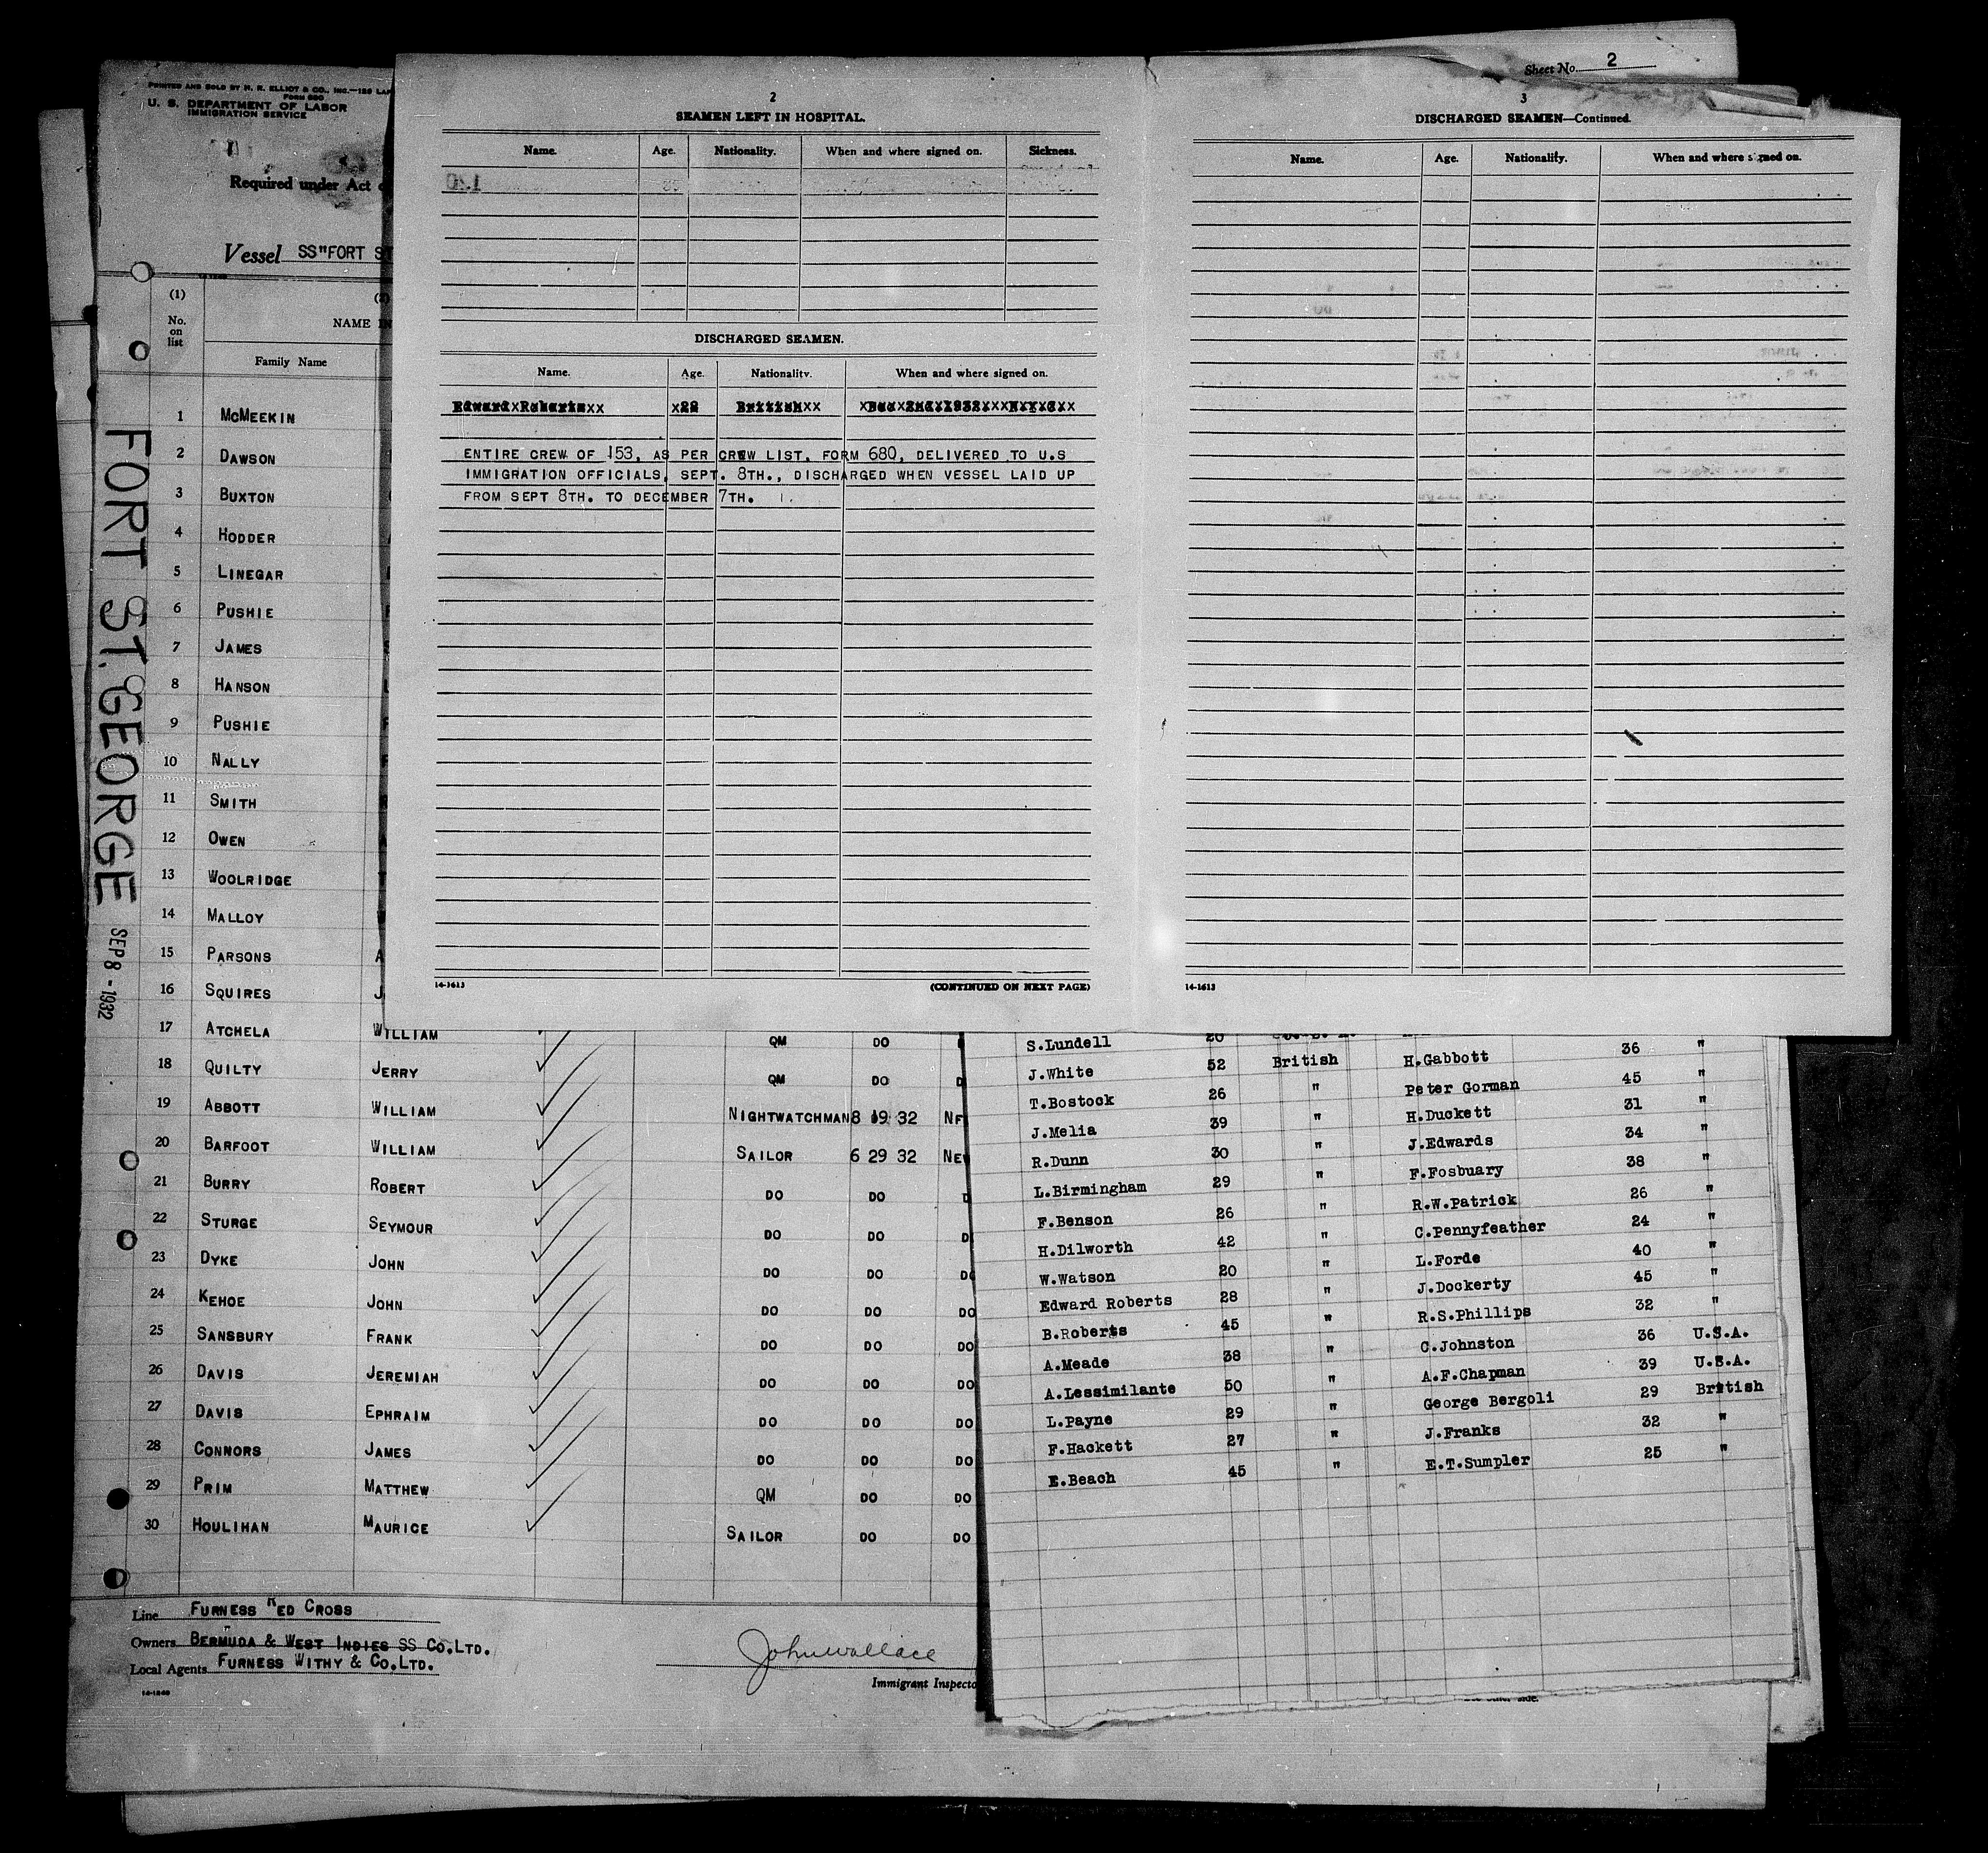 PRINTED AND SOLD BY H. R. ELLIOT & CO., INC.—
FORM 680
U. S. DEPARTMENT OF LABOR
IMMIGRATION SERVICE
Required under Act
Vessel SS"FORT ST
(1)
No. on list
NAME IN
Family Name
1 MCMEEKIN
2 DAWSON
3 BUXTON
4 HODDER
5 LINEGAR
6 PUSHIE
7 JAMES
8 HANSON
9 PUSHIE
10 NALLY
11 SMITH
12 OWEN
13 WOOLRIDGE
14 MALLOY
15 PARSONS A
16 SQUIRES J
17 ATCHELA WILLIAM QM DO
18 QUILTY JERRY QM DO D
19 ABBOTT WILLIAM NIGHTWATCHMAN 8 19 32 NF
20 BARFOOT WILLIAM SAILOR 6 29 32 NEW
21 BURRY ROBERT DO DO D
22 STURGE SEYMOUR DO DO D
23 DYKE JOHN DO DO DO
24 KEHOE JOHN DO DO DO
25 SANSBURY FRANK DO DO DO
26 DAVIS JEREMIAH DO DO DO
27 DAVIS EPHRAIM DO DO DO
28 CONNORS JAMES DO DO DO
29 PRIM MATTHEW QM DO DO
30 HOULIHAN MAURICE SAILOR DO DO
Line FURNESS RED CROSS
Owners BERMUDA & WEST INDIES SS CO.LTD.
Local Agents FURNESS WITHY & CO.LTD.
14-1240
John Wallace
Immigrant Inspecto
FORT ST. GEORGE
SEP 8 - 1932
2
SEAMEN LEFT IN HOSPITAL.
Name. Age. Nationality. When and where signed on. Sickness.
DISCHARGED SEAMEN.
Name. Age. Nationality. When and where signed on.
Edward Roberts British
ENTIRE CREW OF 153, AS PER CREW LIST, FORM 680, DELIVERED TO U.S
IMMIGRATION OFFICIALS, SEPT. 8TH., DISCHARGED WHEN VESSEL LAID UP
FROM SEPT 8TH. TO DECEMBER 7TH.
14-1613
(CONTINUED ON NEXT PAGE)
Sheet No. 2
3
DISCHARGED SEAMEN—Continued.
Name. Age. Nationality. When and where signed on.
14-1613
S.Lundell 26
J.White 52 British H.Gabbott 36 "
T.Bostock 26 " Peter Gorman 45 "
J.Melia 39 " H.Duckett 31 "
R.Dunn 30 " J.Edwards 34 "
L.Birmingham 29 " F.Fosbuary 38 "
F.Benson 26 " R.W.Patrick 26 "
H.Dilworth 42 " C.Pennyfeather 24 "
W.Watson 20 " L.Forde 40 "
Edward Roberts 28 " J.Dockerty 45 "
B.Roberts 45 " R.S.Phillips 32 "
A.Meade 38 " C.Johnston 36 U.S.A.
A.Lessimilante 50 " A.F.Chapman 39 U.S.A.
L.Payne 29 " George Bergoli 29 British
F.Hackett 27 " J.Franks 32 "
E.Beach 45 " E.T.Sumpler 25 "